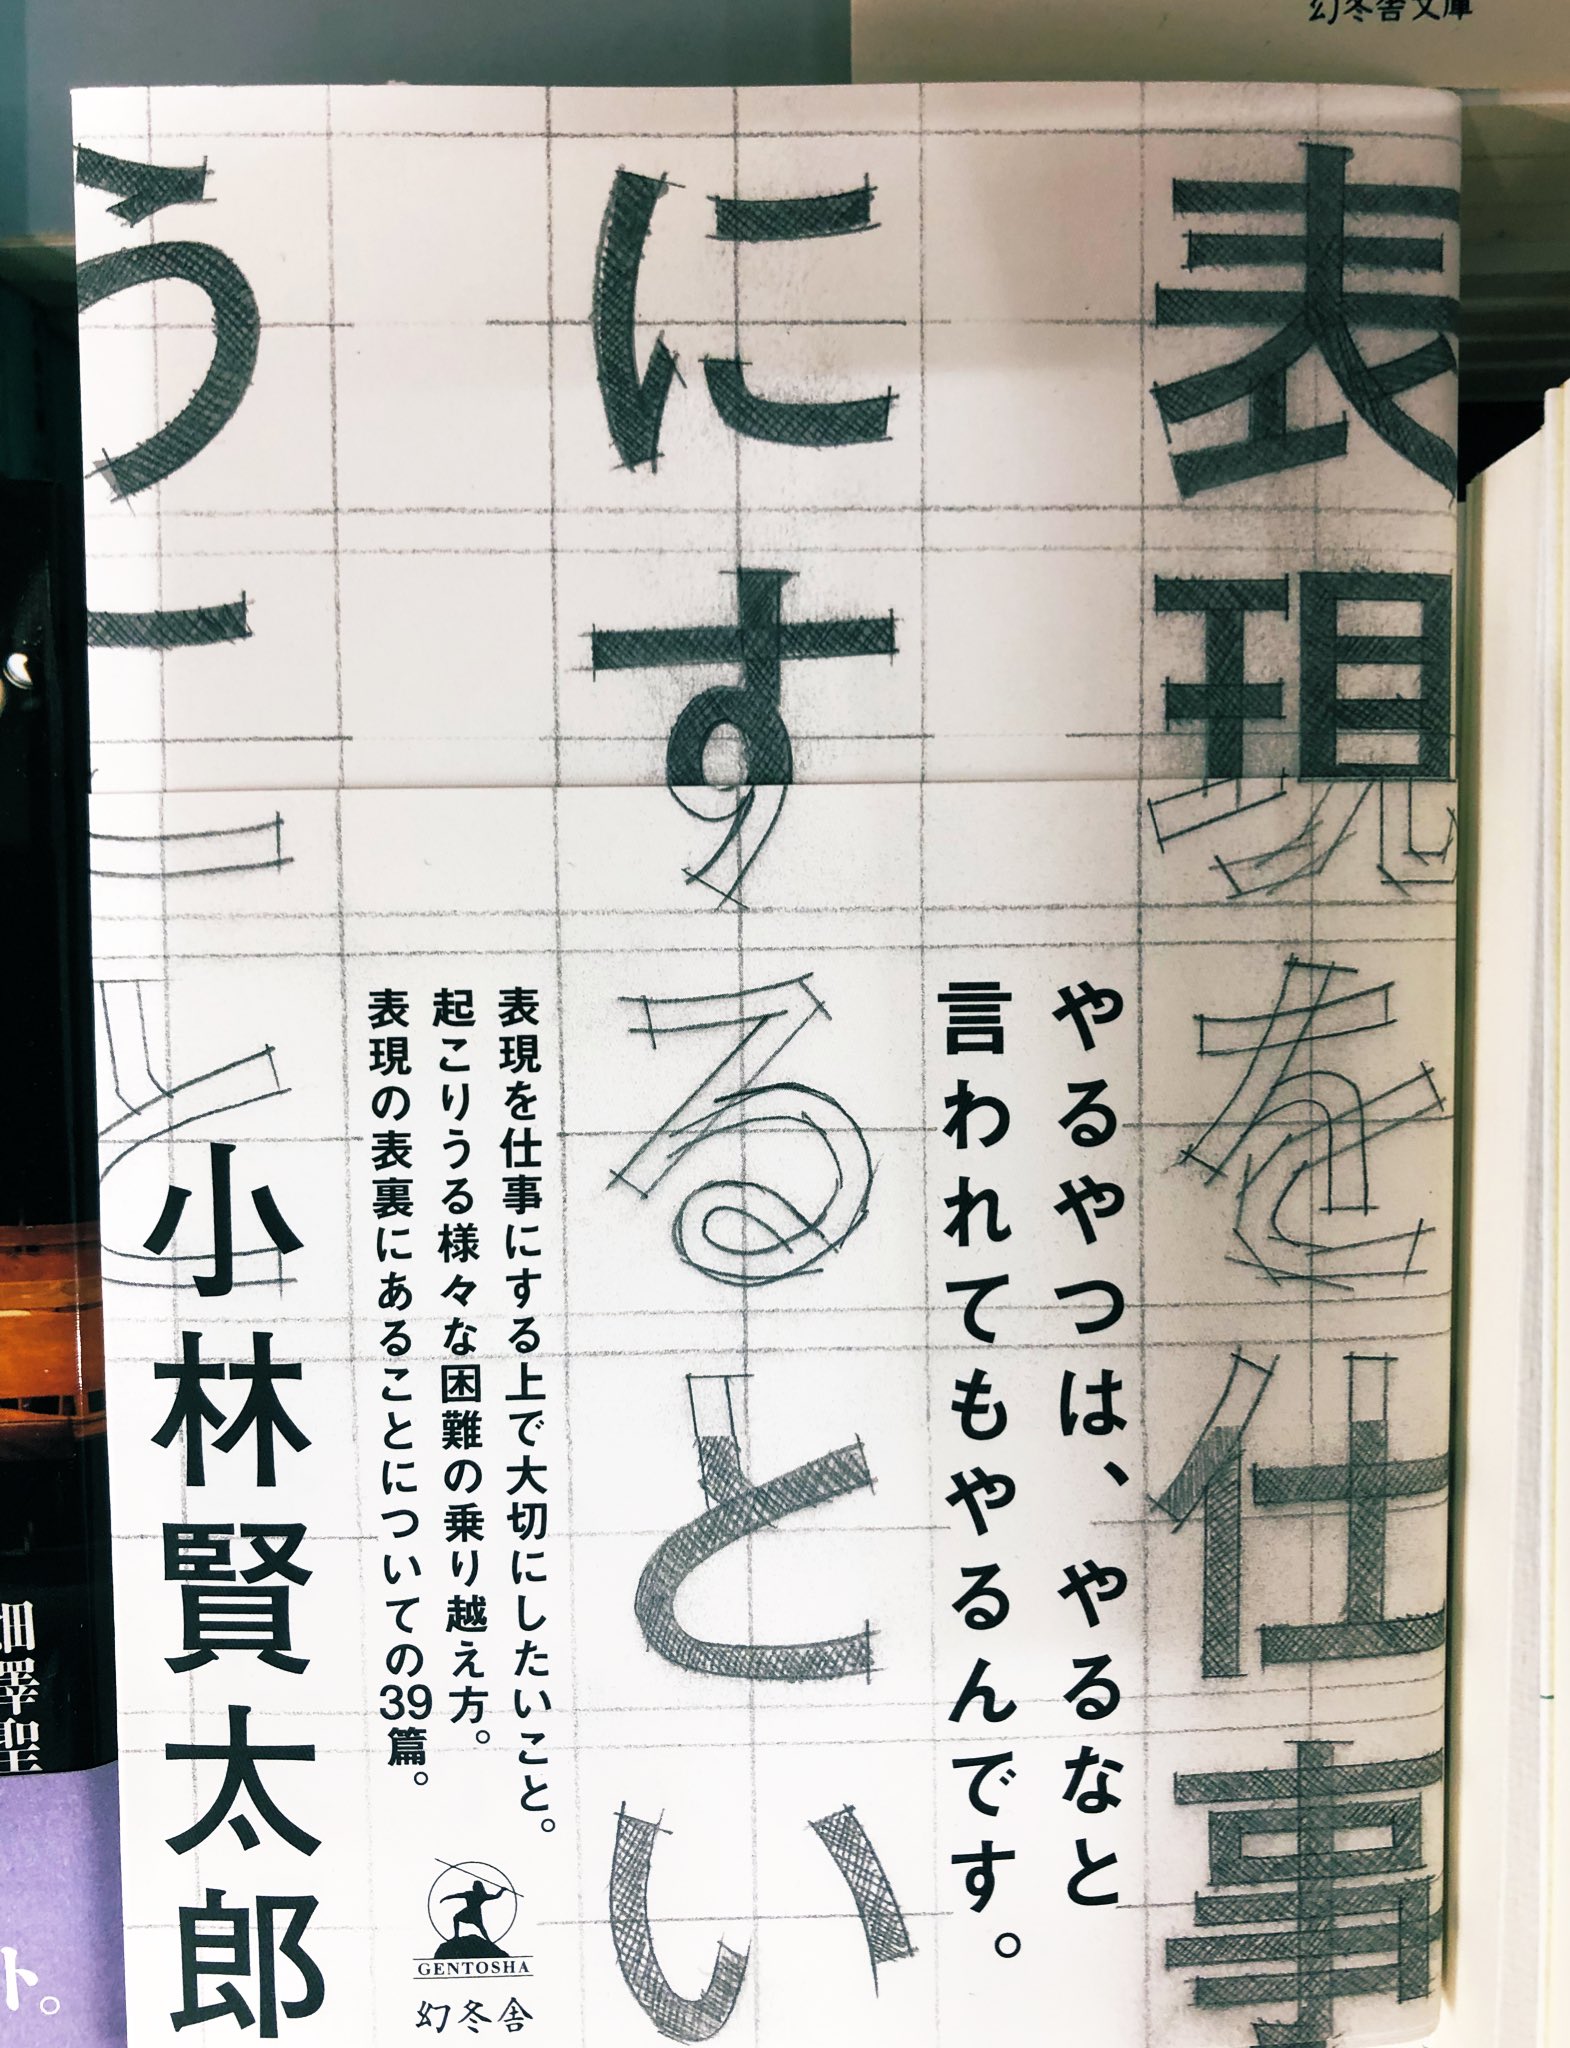 幻冬舎文庫
表現を仕事
にするとい
うこと
やるやつは、やるなと
言われてもやるんです。
表現を仕事にする上で大切にしたいこと。
起こりうる様々な困難の乗り越え方。
表現の表裏にあることについての39篇。
小林賢太郎
GENTOSHA
幻冬舎
畑澤聖
ト。